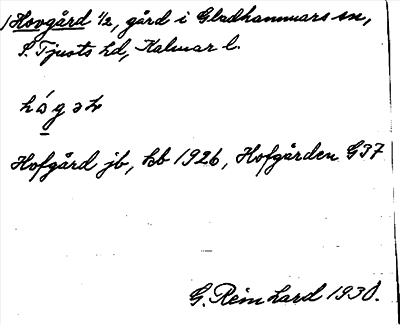 Hovgård 1/2, gård i Gladhammars sn,
S. Tjusts hd, Kalmar l.
Hofgård jb, kb 1926, Hofgården G37
G. Reinhard 1930.